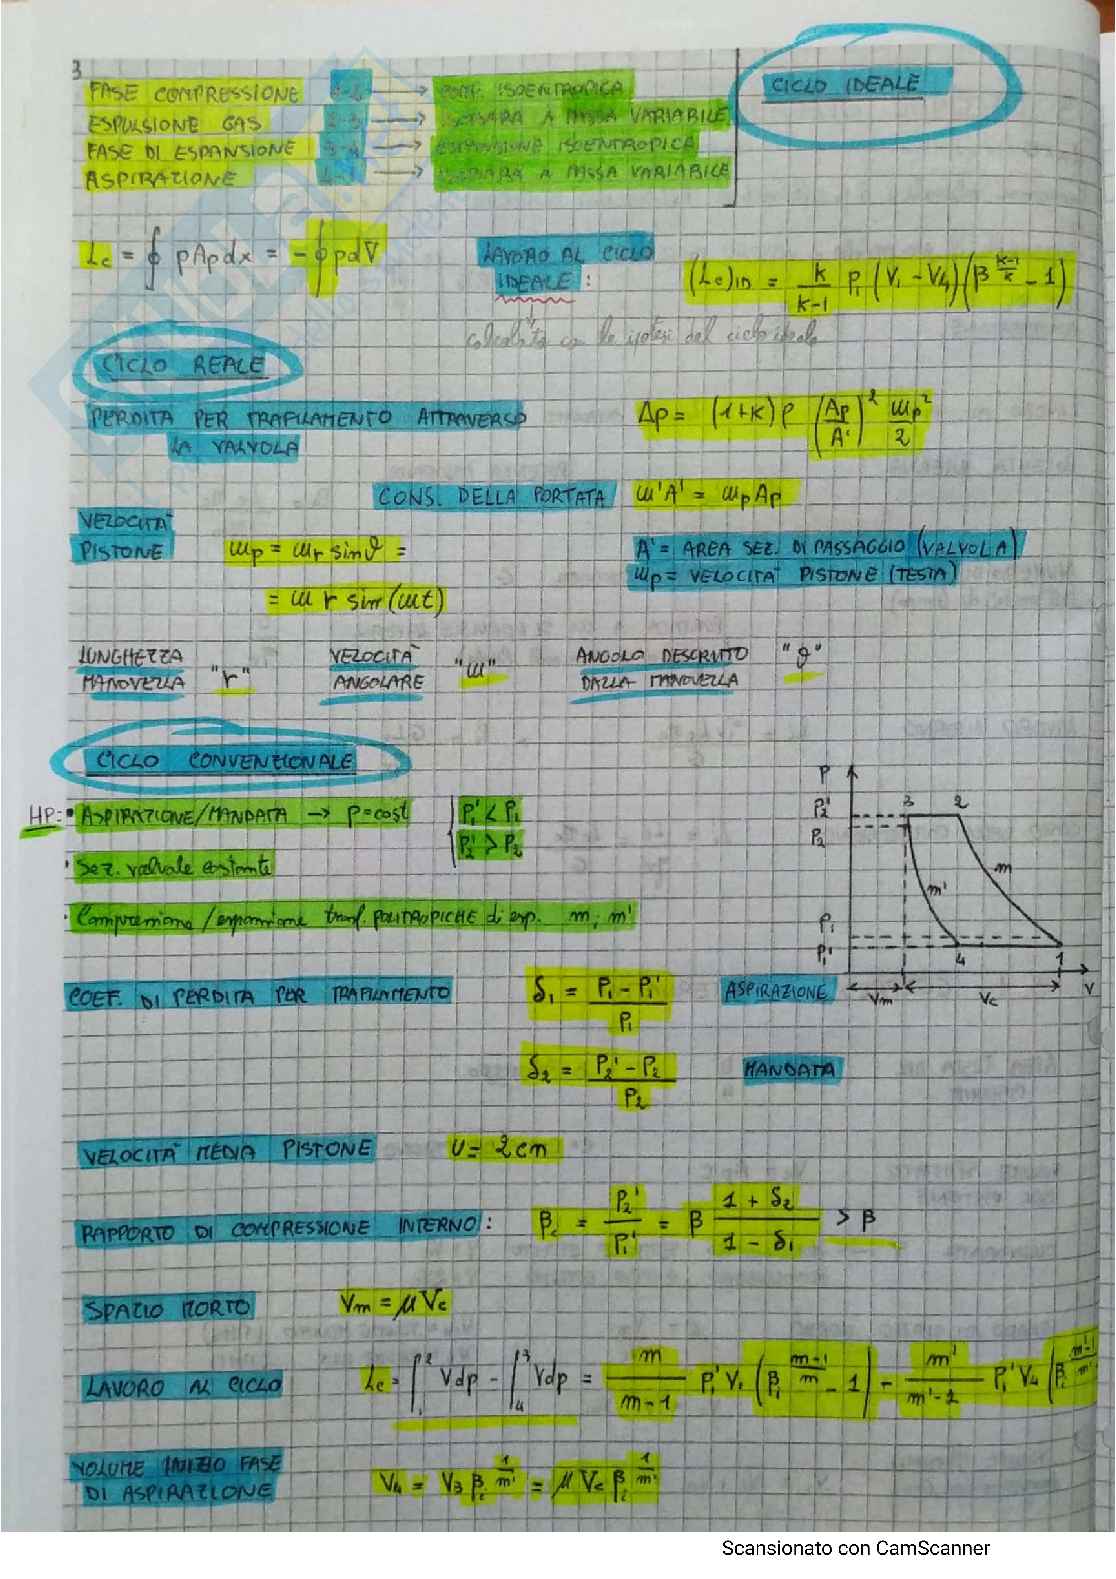 3
CICLO IDEALE
FASE COMPRESSIONE 1-2 → COMP. ISOENTROPICA
ESPULSIONE GAS 2-3 → ISOBARA A MASSA VARIABILE
FASE DI ESPANSIONE 3-4 → ESPANSIONE ISOENTROPICA
ASPIRAZIONE 4-1 → ISOBARA A MASSA VARIABILE
Lc = ∮ pApdx = -∮pdV
LAVORO AL CICLO
IDEALE :
(Lc)ID = k/(k-1) P1 (V1 - V4)(β^((k-1)/k) - 1)
calcolato con le ipotesi del ciclo ideale
CICLO REALE
PERDITA PER TRAFILAMENTO ATTRAVERSO
LA VALVOLA
Δp = (1+K) ρ (Ap/A')² wp²/2
CONS. DELLA PORTATA w'A' = wp Ap
VELOCITÀ
PISTONE wp = ωr sinϑ =
= ω r sin(ωt)
A' = AREA SEZ. DI PASSAGGIO (VALVOLA)
wp = VELOCITÀ PISTONE (TESTA)
LUNGHEZZA
MANOVELLA "r"
VELOCITÀ
ANGOLARE "ω"
ANGOLO DESCRITTO
DALLA MANOVELLA "ϑ"
CICLO CONVENZIONALE
HP: • ASPIRAZIONE/MANDATA → p=cost { P1' < P1
P2' > P2
• Sez. valvole costante
• Compressione/espansione trasf. POLITROPICHE di esp. m; m'
P
P2'
P2
P1
P1'
3 2
m
m'
4 1
Vm Vc V
COEF. DI PERDITA PER TRAFILAMENTO δ1 = (P1 - P1')/P1 ASPIRAZIONE
δ2 = (P2' - P2)/P2 MANDATA
VELOCITÀ MEDIA PISTONE U = 2cn
RAPPORTO DI COMPRESSIONE INTERNO : βi = P2'/P1' = β (1 + δ2)/(1 - δ1) > β
SPAZIO MORTO Vm = μVc
LAVORO AL CICLO Lc = ∫₁² Vdp - ∫₄³ Vdp = m/(m-1) P1' V1 (βi^((m-1)/m) - 1) - m'/(m'-1) P1' V4 (βi^((m'-1)/m'
VOLUME INIZIO FASE
DI ASPIRAZIONE
V4 = V3 βi^(1/m') = μ Vc βi^(1/m')
Scansionato con CamScanner